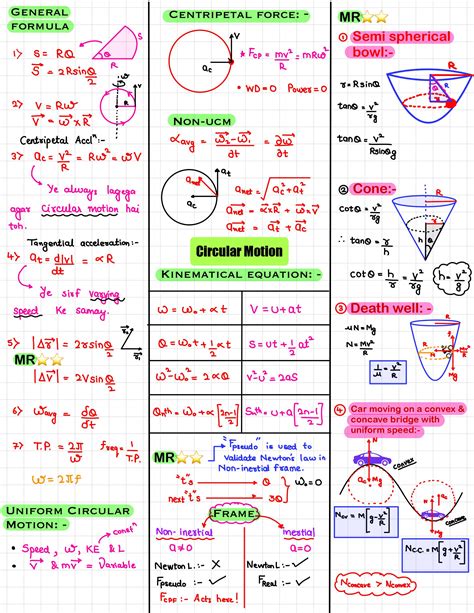 GENERAL
FORMULA
1) S = RQ
S = 2R sin Q/2
2) V = Rω
V = ω × R
Centripetal Accl^n:-
3) a_c = V²/R = Rω² = ωV
Ye always lagega
agar Circular motion hai
toh.
Tangential acceleration:-
4) a_t = d|v|/dt = αR
Ye sirf varying
speed Ke samay.
5) |Δr| = 2r sin Q/2
MR
|ΔV| = 2V sin Q/2
6) ω_avg = ΔQ/Δt
7) T.P. = 2π/ω freq = 1/T.P.
ω = 2πf
UNIFORM CIRCULAR
MOTION: -
const^n
• Speed, ω, KE & L
• V & mv = Variable
CENTRIPETAL FORCE: -
* F_CP = mv²/R = mRω²
• WD = 0 Power = 0
a_c
V
NON-UCM
α_avg = ω₂-ω₁/∂t = ∂ω/∂t
a_net = √a_c²+a_t²
a_net = α×R + ω×V
a_net = a_t + a_c
Circular Motion
KINEMATICAL EQUATION: -
ω = ω₀ + αt V = u + at
Q = ω₀t + ½αt² S = ut + ½at²
ω² - ω₀² = 2αQ V² - u² = 2as
Q_nth = ω₀ + α[2n-1/2] S_nth = u + a[2n-1/2]
MR
"F_pseudo" is used to
Validate Newton's law in
Non-inertial frame.
1st "t"s → Q
next "t"s → 3Q
ω₀ = 0
FRAME:
Non-inertial inertial
a≠0 a=0
Newton L:- ✗ Newton L:- ✓
F_pseudo :- ✓ F_Real :- ✓
F_CPF :- Acts here!
MR
① Semi spherical
bowl:-
r = R sin Q
tan Q = V²/rg
tan Q = V²/R sin Q g
② Cone:-
cot Q = V²/rg
∴ tan Q = r/h
cot Q = h/r = V²/rg
h = V²/g
③ Death well:-
μN = Mg
N = MV²/R
1/μ = V²/Rg
④ Car moving on a convex &
concave bridge with
uniform speed:-
CONVEX
CONCAVE
N_cv = M[g - V²/R]
N_CC = M[g + V²/R]
N_Concave > N_Convex